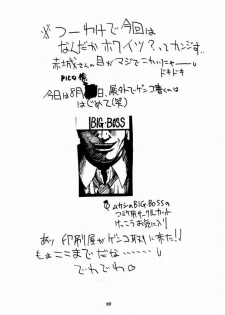 ※つーわけで今回は
なんだかホワイツ?ってカンジす。
赤城さんの目がマジでこわいにゃーん
ドキドキ
PICO
今日は8月日、屋外でゲンコ書くのは
はじめて(笑)
BIG・BOSS
ムカシのBIG・BOSSの
コミケ用サークルカット
けっこうお気に入り
あっ 印刷屋がゲンコ取りに来た!!
もぉここまでだな……
でわでわ
20